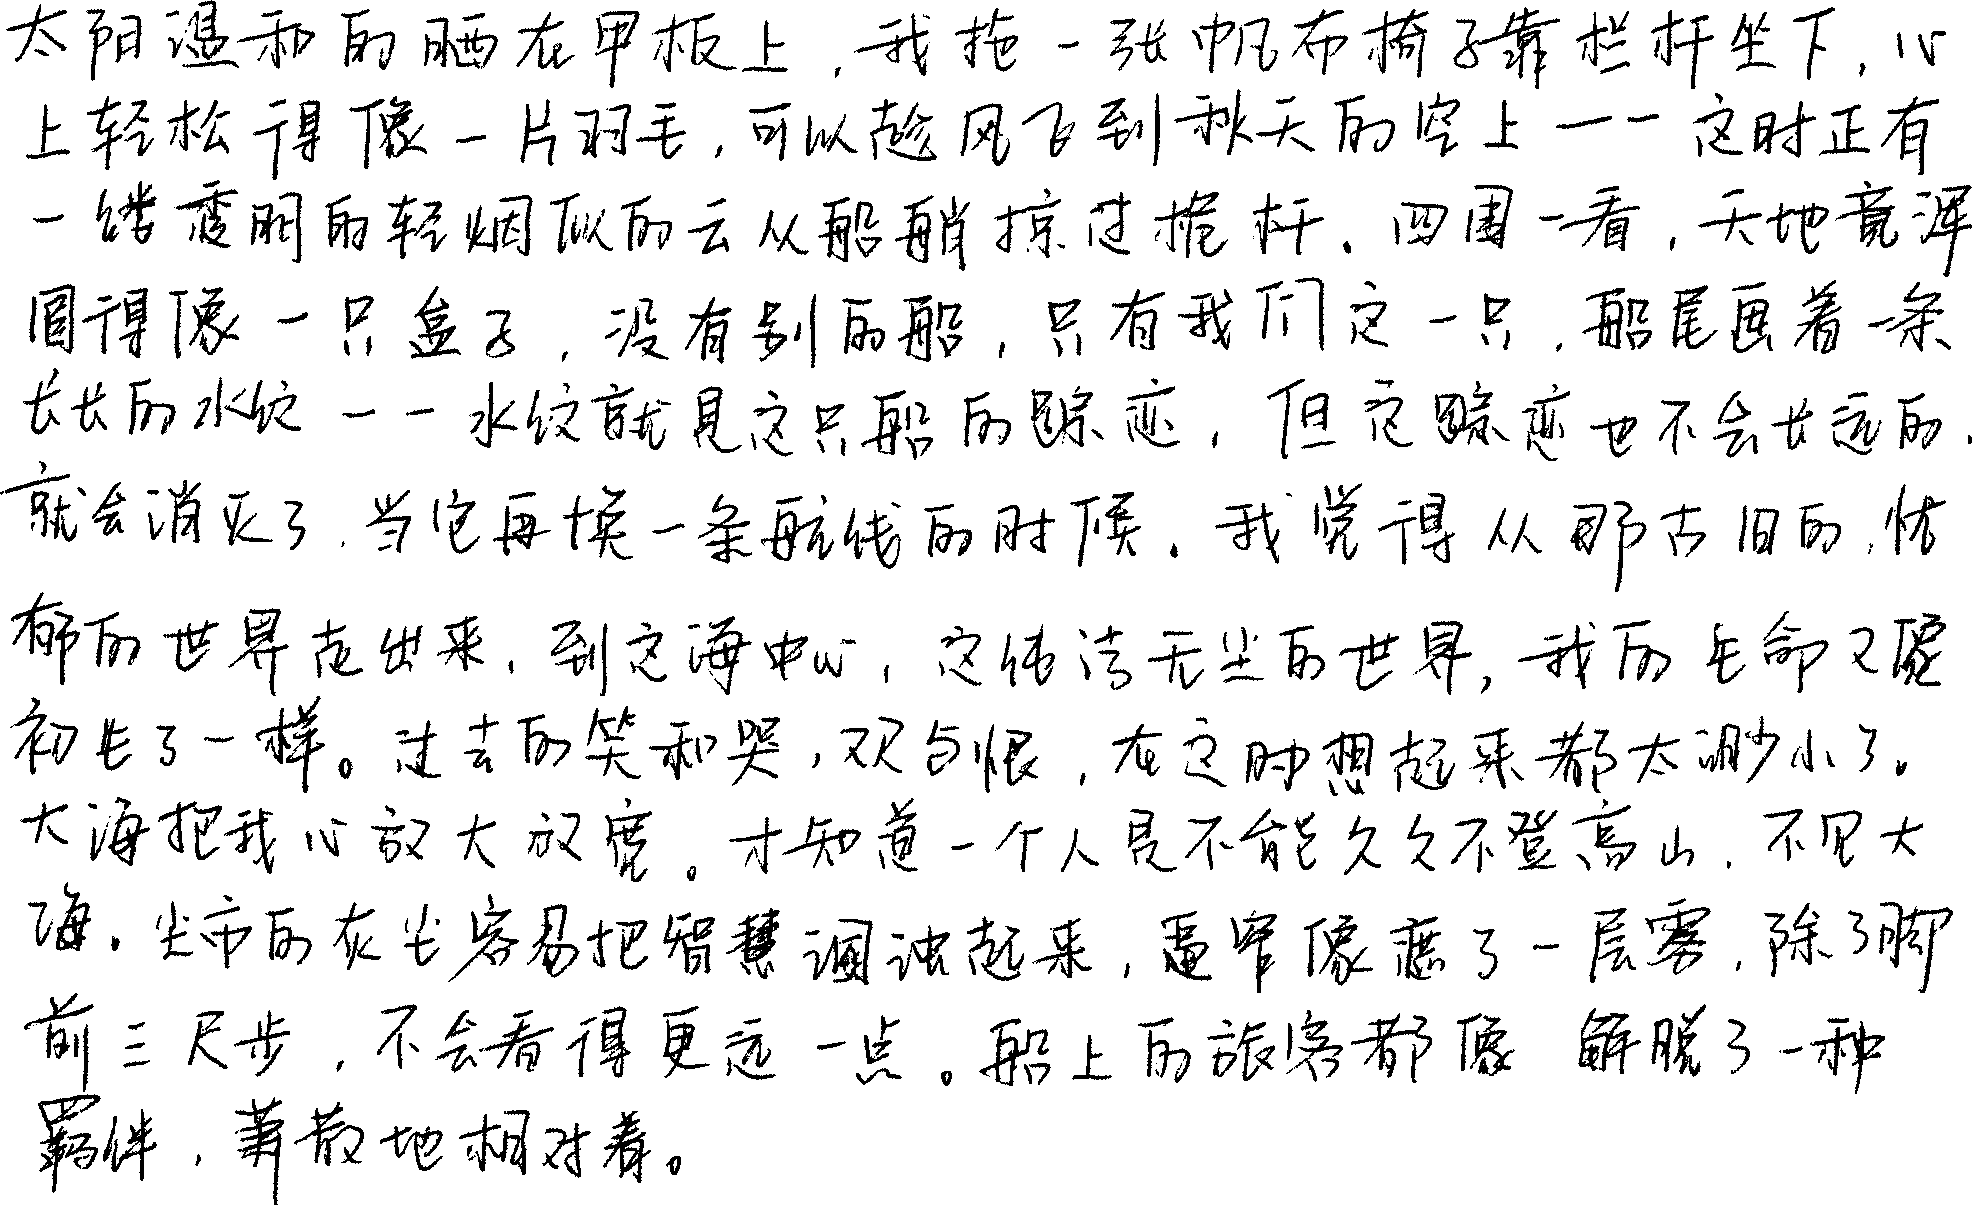 太阳温和的晒在甲板上，我拖一张帆布椅子靠栏杆坐下，心
上轻松得像一片羽毛，可以趁风飞到秋天的空上——这时正有
一缕透明的轻烟似的云从船艄掠过桅杆。四围一看，天地竟浑
圆得像一只盒子，没有别的船，只有我们这一只，船尾画着一条
长长的水纹——水纹就是这只船的踪迹，但这踪迹也不会长远的，
就会消灭了，当它再换一条航线的时候。我觉得从那古旧的，忧
郁的世界走出来，到这海中心，这纯洁无尘的世界，我的生命又像
初生了一样。过去的笑和哭，欢与恨，在这时想起来都太渺小了。
大海把我心放大放宽。才知道一个人是不能久久不登高山，不见大
海。尘市的灰尘容易把智慧涸浊起来，逼窄像遮了一层雾，除了脚
前三尺步，不会看得更远一点。船上的旅客都像解脱了一种
羁绊，萧散地相对着。